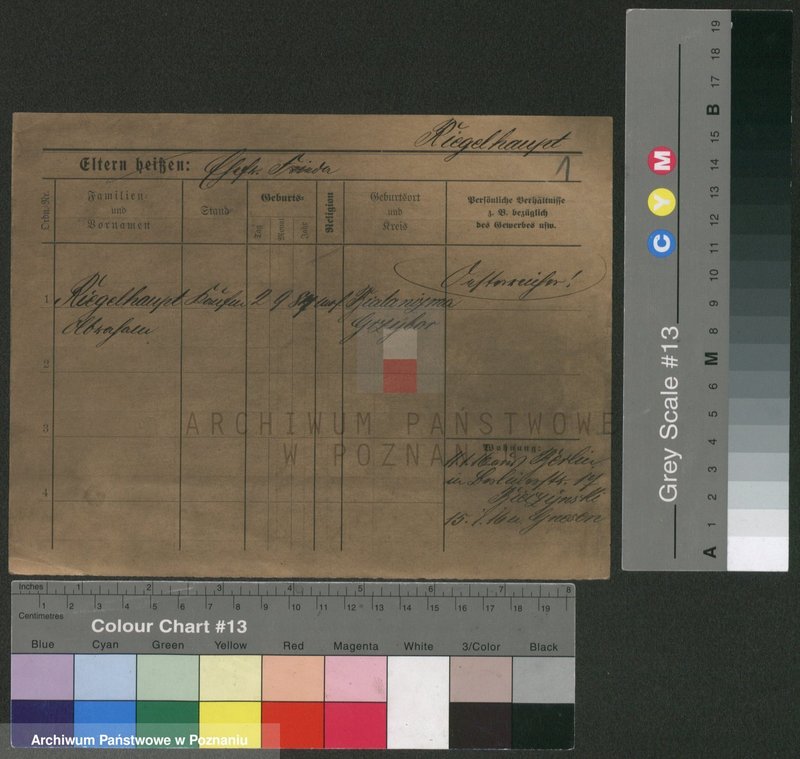 Riegelhaupt
1
Eltern heißen: Ehefr. Frieda
Ordn.-Nr.
Familien- und Vornamen
Stand
Geburts-
Tag
Monat
Jahr
Religion
Geburtsort und Kreis
Persönliche Verhältnisse
z. B. bezüglich
des Gewerbes usw.
Oesterreicher!
1 Riegelhaupt Kaufm 2 9 84 mos
Abraham
2
3
4
ARCHIWUM PAŃSTWOWE
W POZNANIU
Wohnung:
Berlin
15. Gnesen
Grey Scale #13
C Y M
A 1 2 3 4 5 6 M 8 9 10 11 12 13 14 15 B 17 18 19
Inches 1 2 3 4 5 6 7 8
1 2 3 4 5 6 7 8 9 10 11 12 13 14 15 16 17 18 19
Centimetres
Colour Chart #13
Blue Cyan Green Yellow Red Magenta White 3/Color Black
Archiwum Państwowe w Poznaniu